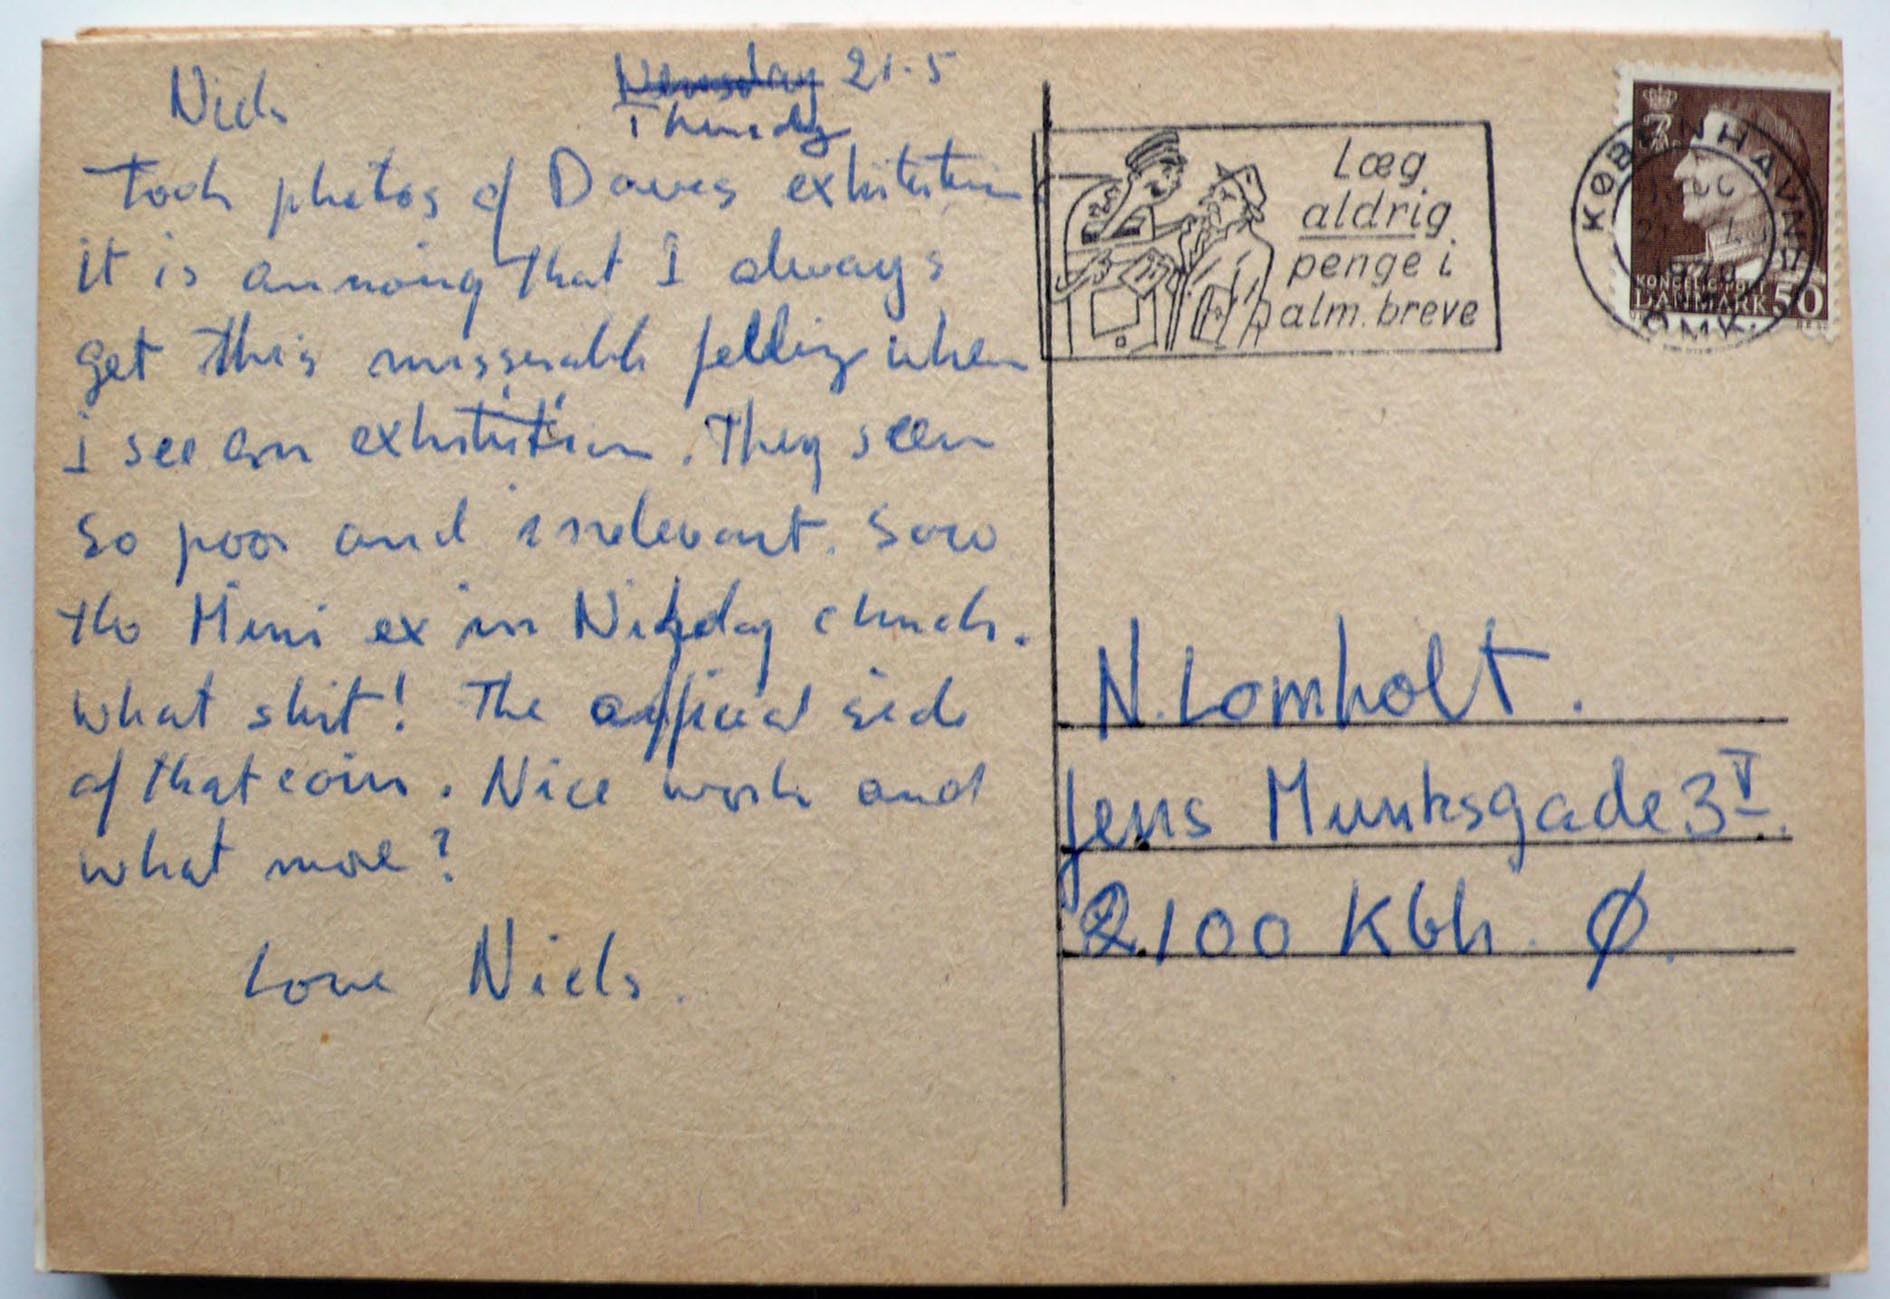 Niels
21.5
Thursday
Took photos of Daves exhibition
it is annoing that I always
get this misserable felling when
i see an exhibition. They seem
so poor and irrelevant. Saw
the Mini ex in church.
what shit! The official side
of that coin. Nice work and
what more?
Love Niels.
Læg
aldrig
penge i
alm. breve
KØBENHAVN
OMK.
DANMARK 50
N. Lomholt.
Jens Munksgade 3 V.
2100 Kbh. Ø.